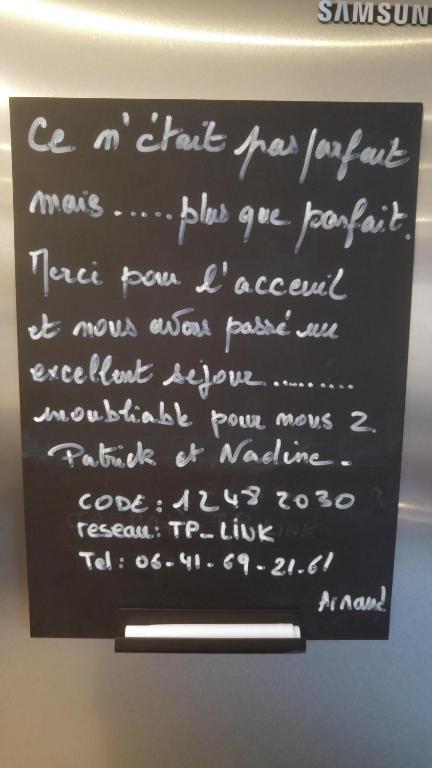 SAMSUN
Ce n'était pas parfait
mais..... plus que parfait.
Merci pour l'acceuil
et nous avons passé un
excellent séjour..........
inoubliable pour nous 2.
Patrick et Nadine.
CODE: 1248 2030
reseau: TP-LiNK
Tel: 06-41-69-21-61
Arnaud